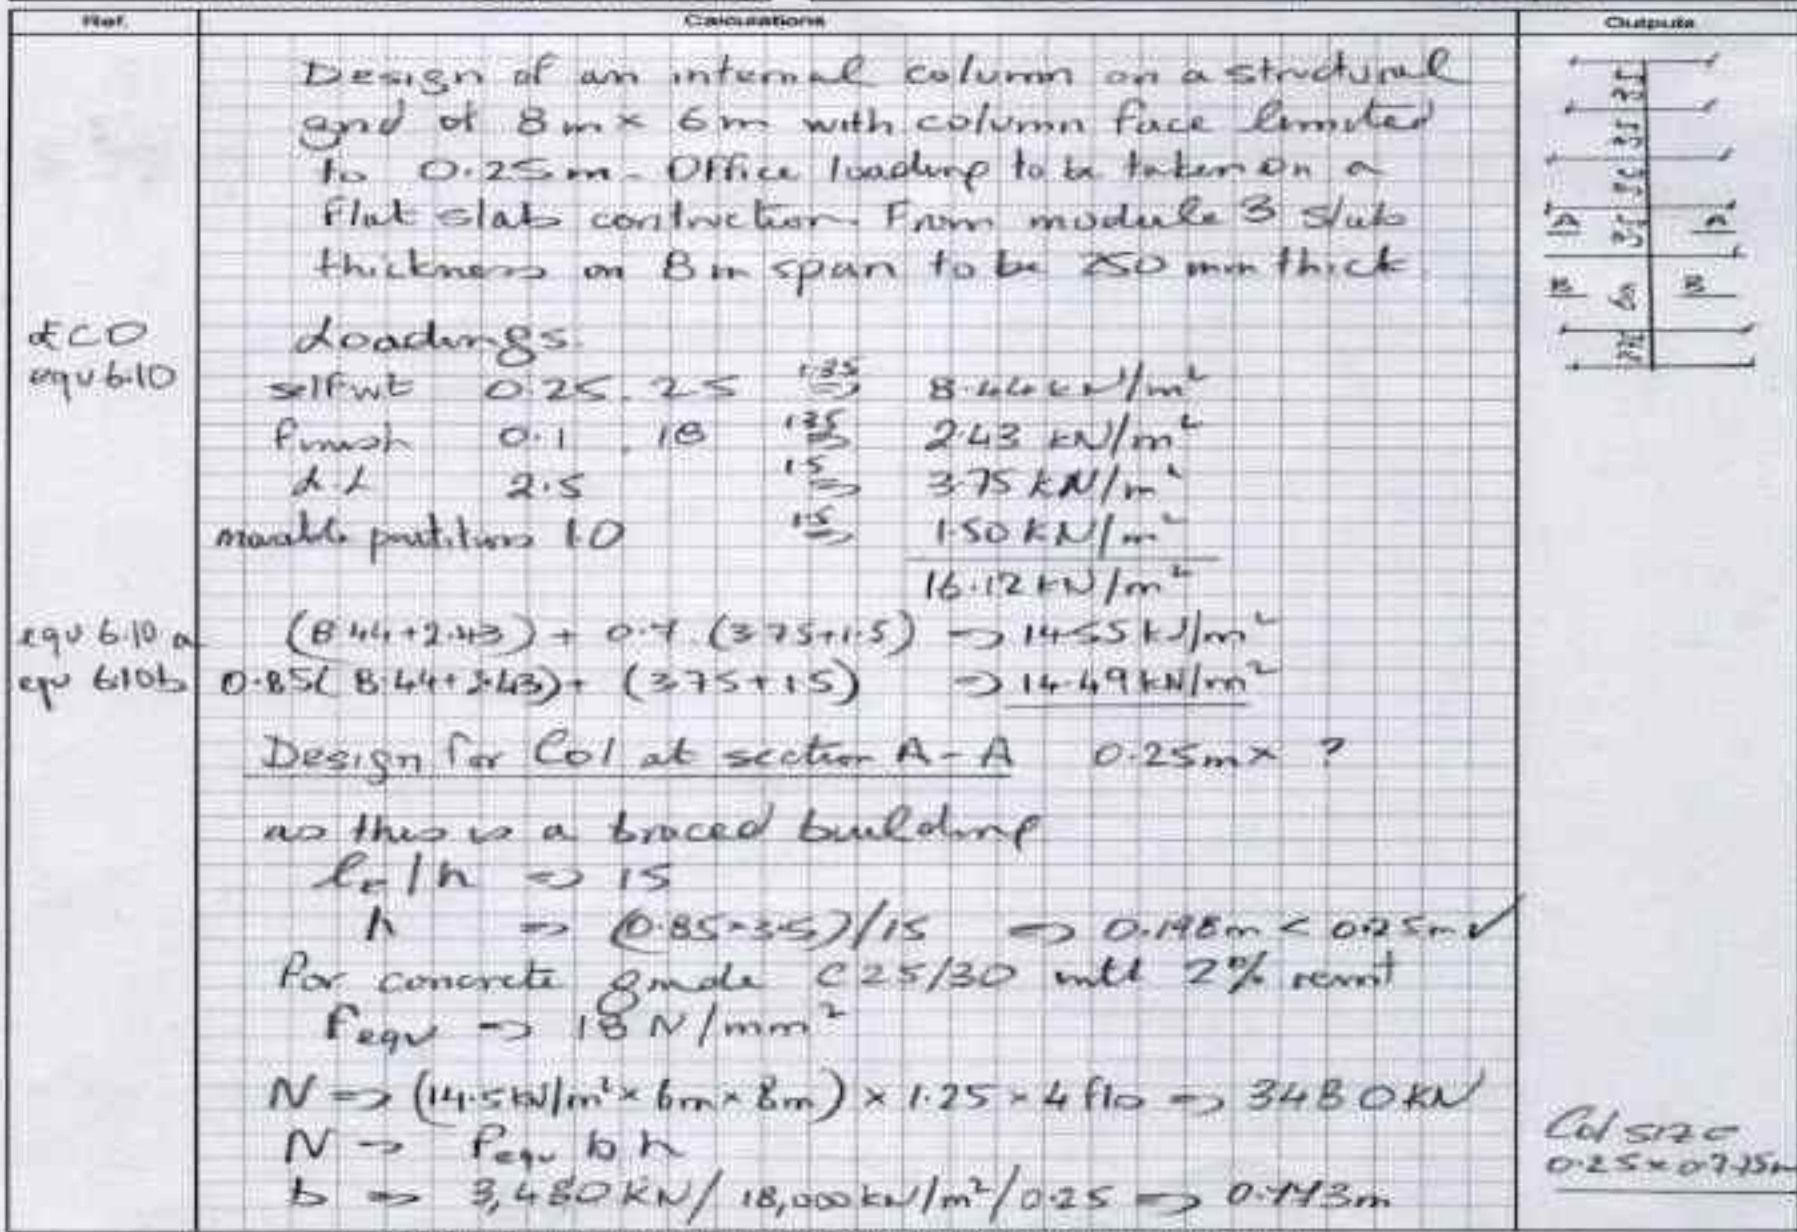 Ref. Calculations Outputs
Design of an internal column on a structural
grid of 8m x 6m with column face limited
to 0.25m - Office loading to be taken on a
Flat slab contruction. From module 3 slab
thickness on 8m span to be 250 mm thick
EC0
equ 6.10
Loadings.
selfwt 0.25 . 25 1.35 => 8.44 kN/m²
finish 0.1 . 18 1.35 => 2.43 kN/m²
L.L 2.5 1.5 => 3.75 kN/m²
movable partitions 1.0 1.5 => 1.50 kN/m²
16.12 kN/m²
equ 6.10 a (8.44+2.43) + 0.7 . (3.75+1.5) => 14.55 kN/m²
equ 6.10b 0.85(8.44+2.43)+ (3.75+1.5) => 14.49 kN/m²
Design for Col at section A-A 0.25m x ?
as this is a braced building
le/h => 15
h => (0.85 x 3.5)/15 => 0.198m < 0.25m ✓
For concrete grade C25/30 with 2% remt
Fequ => 18 N/mm²
N => (14.5kN/m² x 6m x 8m) x 1.25 x 4 flo => 3480kN
N => Fequ b h
b => 3,480kN/ 18,000kN/m²/0.25 => 0.773m
A A
B B
Col size
0.25 x 0.775m